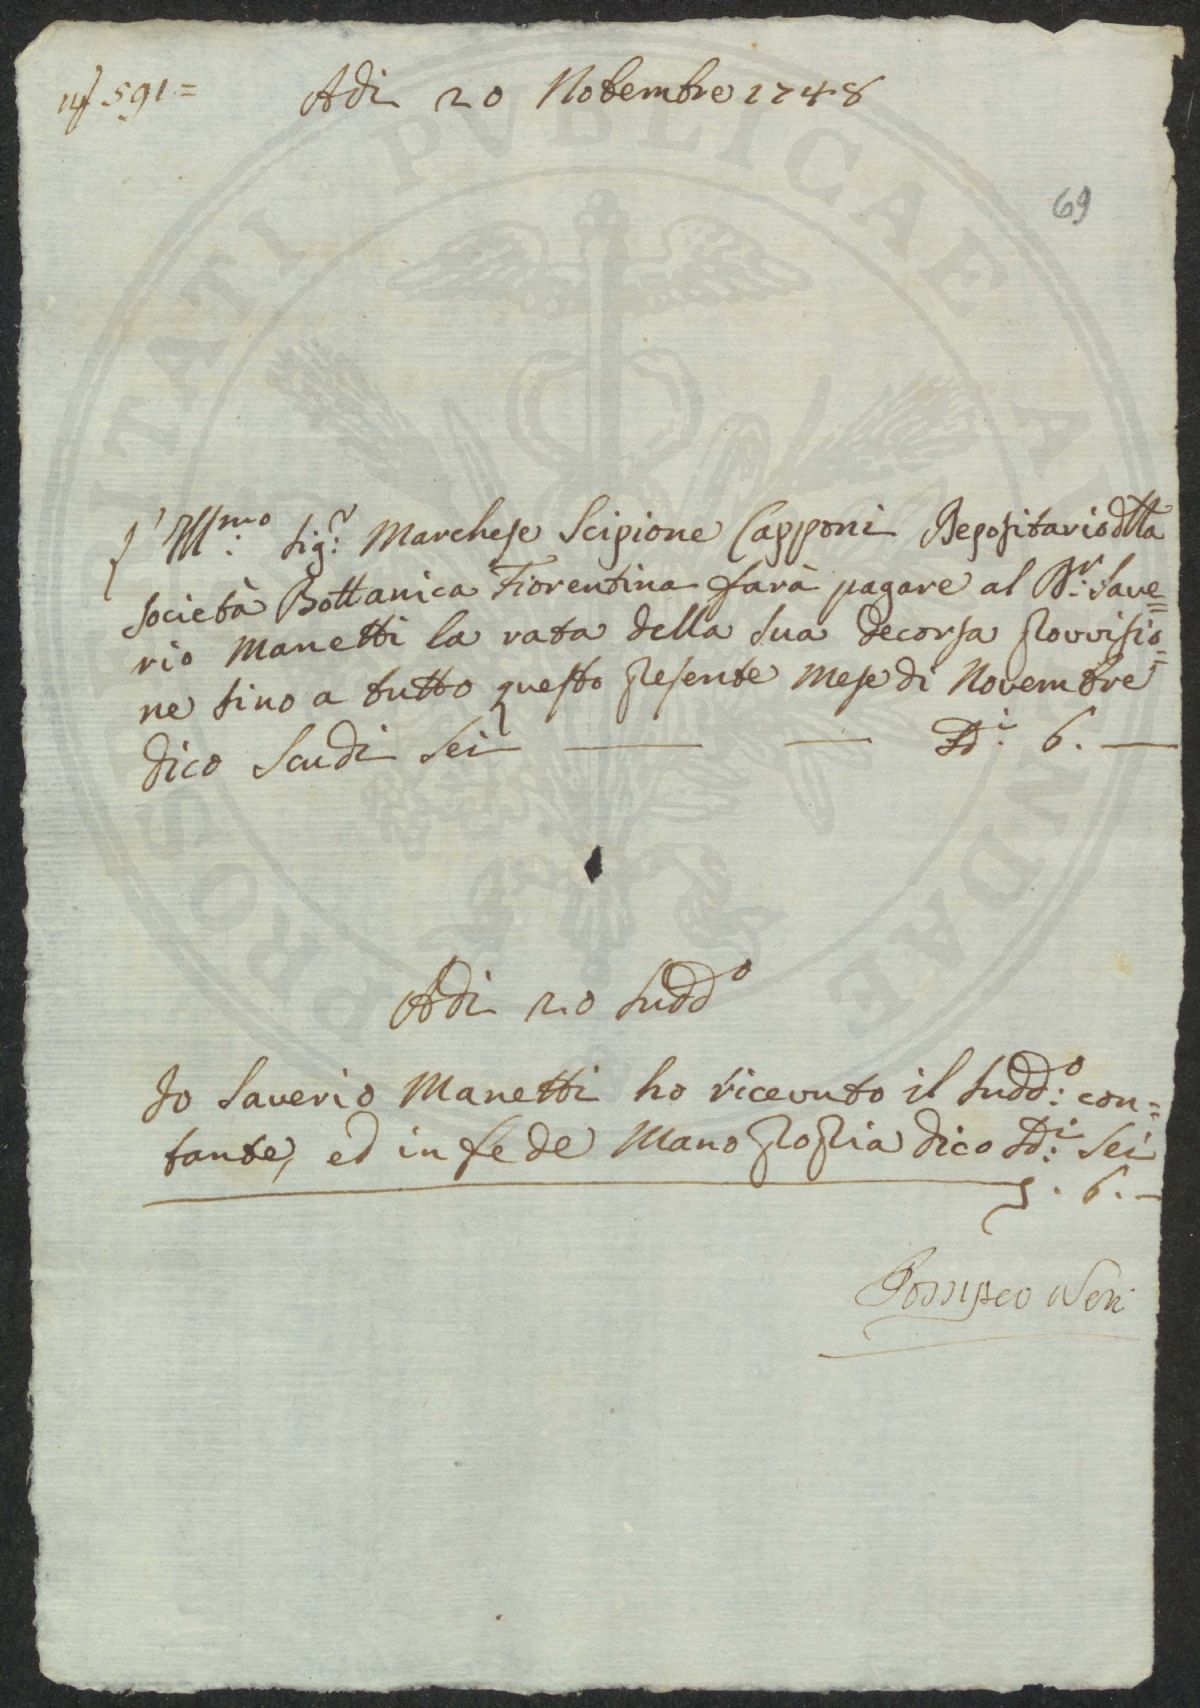 n.º 591 =
Adi 20 Novembre 1748
69
L'Ill:mo Sig:r Marchese Scipione Capponi Depositario dlla
Società Bottanica Fiorentina farà pagare al D:r Save=
rio Manetti la rata della sua decorsa Provvisio=
ne sino a tutto questo presente Mese di Novembre
dico Scudi Sei — — Di: 6. —
Adi 20 Sudd:o
Io Saverio Manetti ho ricevuto il Sudd:o con=
tante, ed in fede Mano propria dico Di: Sei
6. —
Pompeo Neri
PROSPERITATI PVBLICAE AVGENDAE